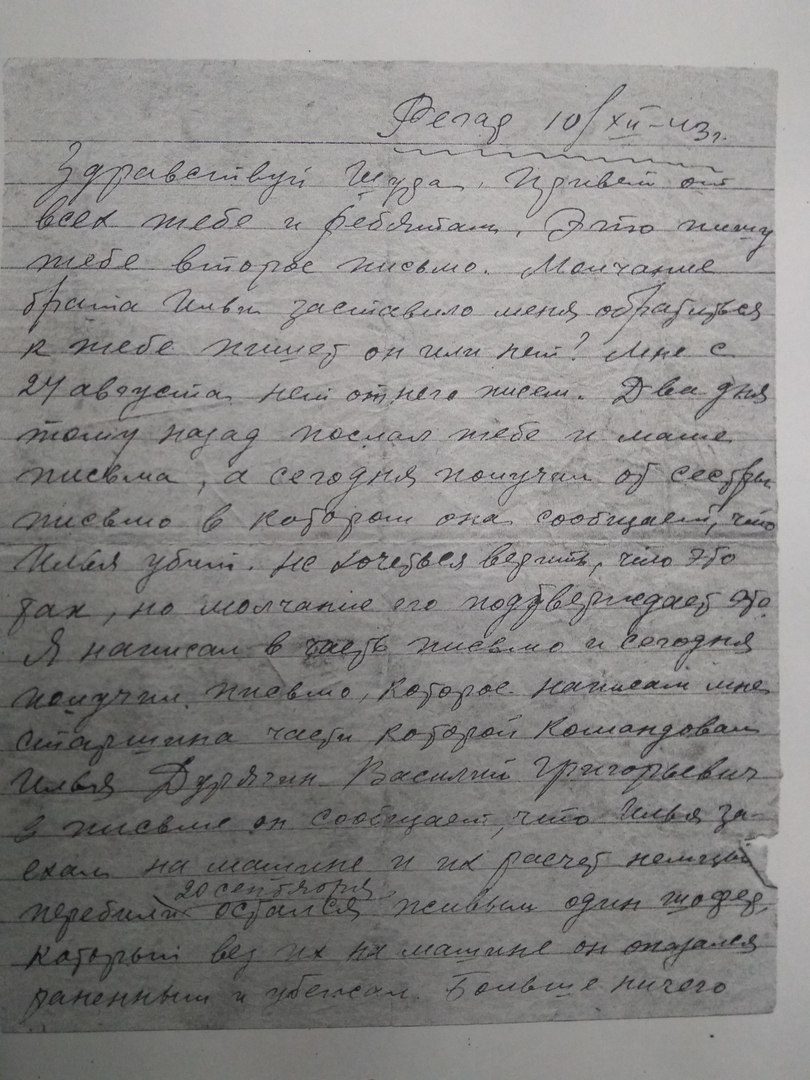 Регар 10/XII-43г.
Здравствуй Шура. Привет от
всех тебе и ребятам. Это пишу
тебе второе письмо. Молчание
брата Ильи заставило меня обратиться
к тебе пишет он или нет? Мне с
24 августа нет от него писем. Два дня
тому назад послал тебе и маме
письма, а сегодня получил от сестры
письмо в котором она сообщает, что
Илья убит. Не хочеться верить, что это
так, но молчание его подтверждает это.
Я написал в часть письмо и сегодня
получил письмо, которое написал мне
старшина части которой командовал
Илья Дурягин Василий Григорьевич
в письме он сообщает, что Илья за-
ехал на машине и их расчет немцы
20 сентября
перебили остался живым один шофер,
который вез их на машине он оказался
раненным и убежал. Больше ничего